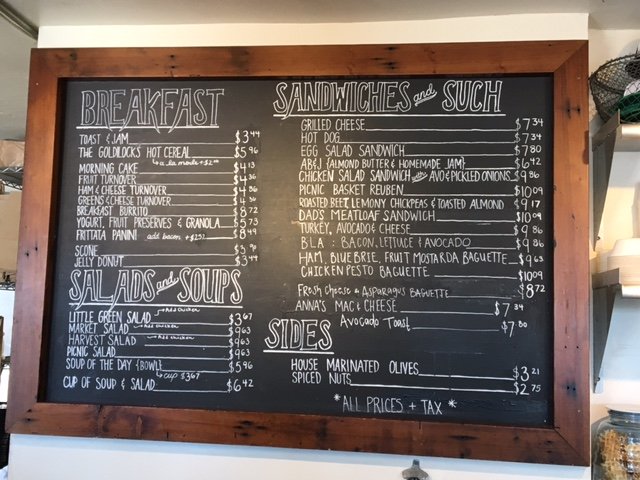 BREAKFAST
TOAST & JAM $3.44
THE GOLDILOCKS HOT CEREAL $5.96
a la mode +$2.00
MORNING CAKE $4.13
FRUIT TURNOVER $4.36
HAM & CHEESE TURNOVER $4.36
GREENS & CHEESE TURNOVER $4.36
BREAKFAST BURRITO $8.72
YOGURT, FRUIT PRESERVES & GRANOLA $5.73
FRITTATA PANINI add bacon +$2.52 $8.49
SCONE $3.90
JELLY DONUT $3.44
SALADS and SOUPS
+ Add chicken
LITTLE GREEN SALAD $3.67
MARKET SALAD + Add chicken $9.63
HARVEST SALAD + Add chicken $9.63
PICNIC SALAD $9.63
SOUP OF THE DAY {BOWL} $5.96
cup $3.67
CUP OF SOUP & SALAD $6.42
SANDWICHES and SUCH
GRILLED CHEESE $7.34
HOT DOG $7.34
EGG SALAD SANDWICH $7.80
AB&J {ALMOND BUTTER & HOMEMADE JAM} $6.42
CHICKEN SALAD SANDWICH with AVO & PICKLED ONIONS $9.86
PICNIC BASKET REUBEN $10.09
ROASTED BEET, LEMONY CHICKPEAS & TOASTED ALMOND $9.17
DAD'S MEATLOAF SANDWICH $10.09
TURKEY, AVOCADO & CHEESE $9.86
BLA: BACON, LETTUCE & AVOCADO $9.86
HAM, BLUE BRIE, FRUIT MOSTARDA BAGUETTE $9.63
CHICKEN PESTO BAGUETTE $10.09
Fresh Cheese & Asparagus BAGUETTE $8.72
ANNA'S MAC & CHEESE $7.34
Avocado Toast $7.80
SIDES
HOUSE MARINATED OLIVES $3.21
SPICED NUTS $2.75
*ALL PRICES + TAX*